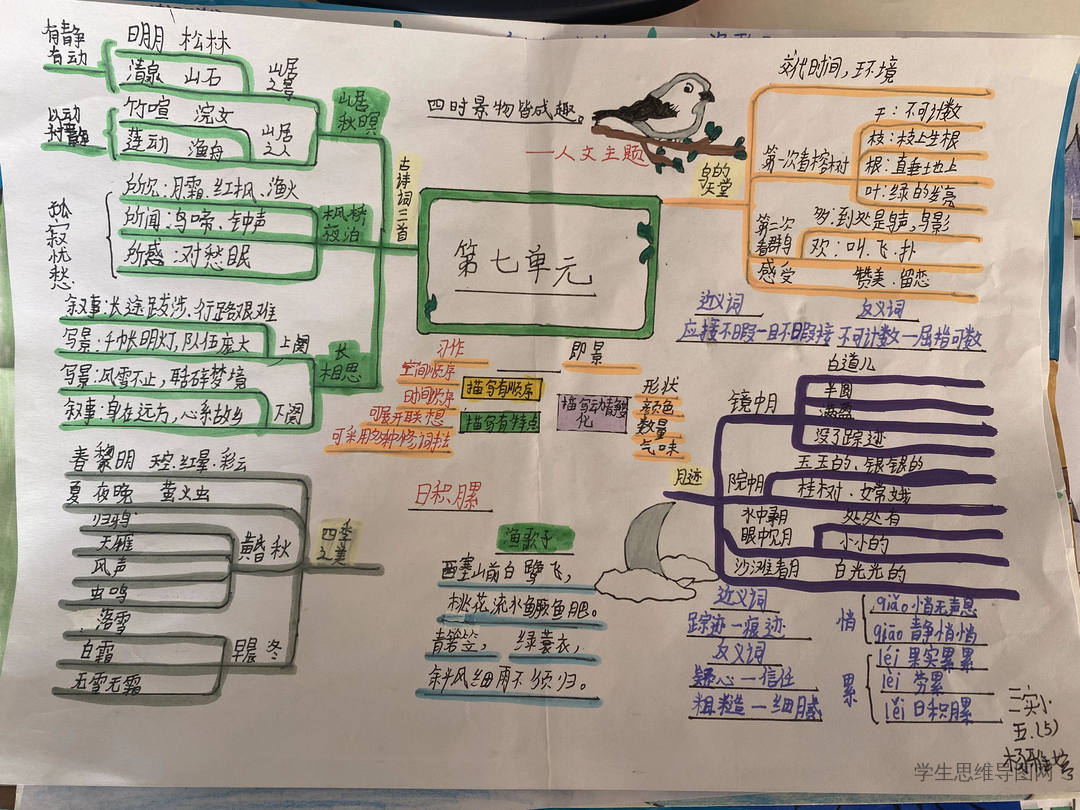 第七单元
四时景物皆成趣。
—人文主题
古诗词三首
山居秋暝
山居之景
有静有动
明月 松林
清泉 山石
山居之人
以动
竹喧 浣女
莲动 渔舟
枫桥夜泊
孤寂忧愁
所见:月霜.红枫、渔火
所闻:乌啼、钟声
所感:对愁眠
长相思
上阕
叙事:长途跋涉,行路艰难
写景:千帐明灯,队伍庞大
下阕
写景:风雪不止,聒碎梦境
叙事:身在远方,心系故乡
四季之美
春 黎明 天空.红晕.彩云
夏 夜晚 萤火虫
黄昏 秋
归鸦
大雁
风声
虫鸣
早晨 冬
落雪
白霜
无雪无霜
习作
即景
空间顺序
时间顺序
可展开联想
可采用多种修词手法
描写有顺序
描写有特点
描写动情变化
形状
颜色
数量
气味
日积月累
渔歌子
西塞山前白鹭飞,
桃花流水鳜鱼肥。
青箬笠, 绿蓑衣,
斜风细雨不须归。
鸟的天堂
交代时间,环境
第一次看榕树
干:不可计数
枝:枝上生根
根:直垂地上
叶:绿的发亮
第二次看群鸟
多:到处是鸟声、鸟影
欢:叫.飞.扑
感受
赞美.留恋
近义词 反义词
应接不暇—目不暇接 不可计数—屈指可数
月迹
镜中月
白道儿
半圆
满盈
没了踪迹
院中月
玉玉的、银银的
桂树.女常娥
水中月
处处有
眼中见月
小小的
沙滩看月 白光光的
近义词
踪迹—痕迹
反义词
疑心—信任
粗糙—细腻
悄
qiǎo 悄无声息
qiāo 静悄悄
累
léi 果实累累
lèi 劳累
lěi 日积月累
三实小
五.(5)
学生思维导图网